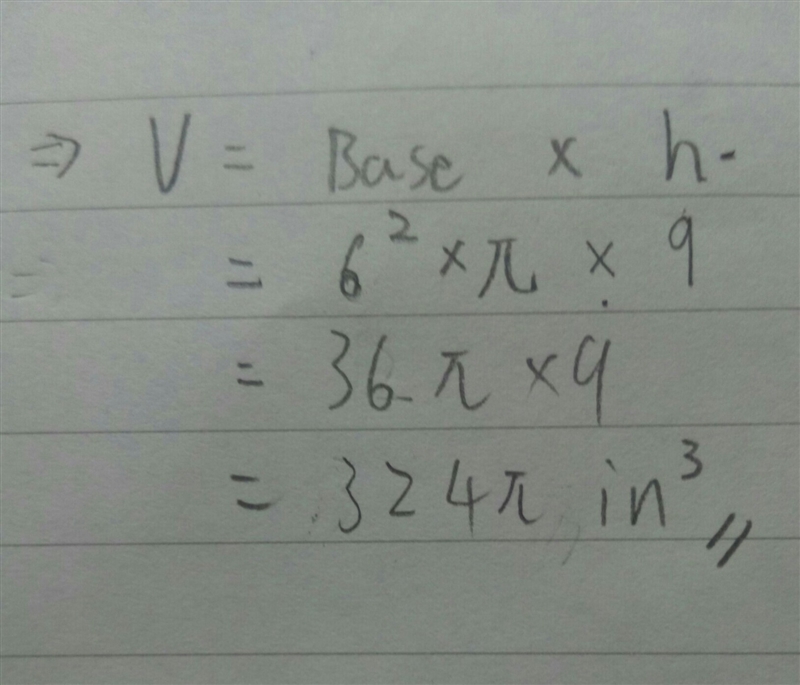 ⇒ V = Base × h.
= 6² × π × 9
= 36 π × 9
= 324π in³ //